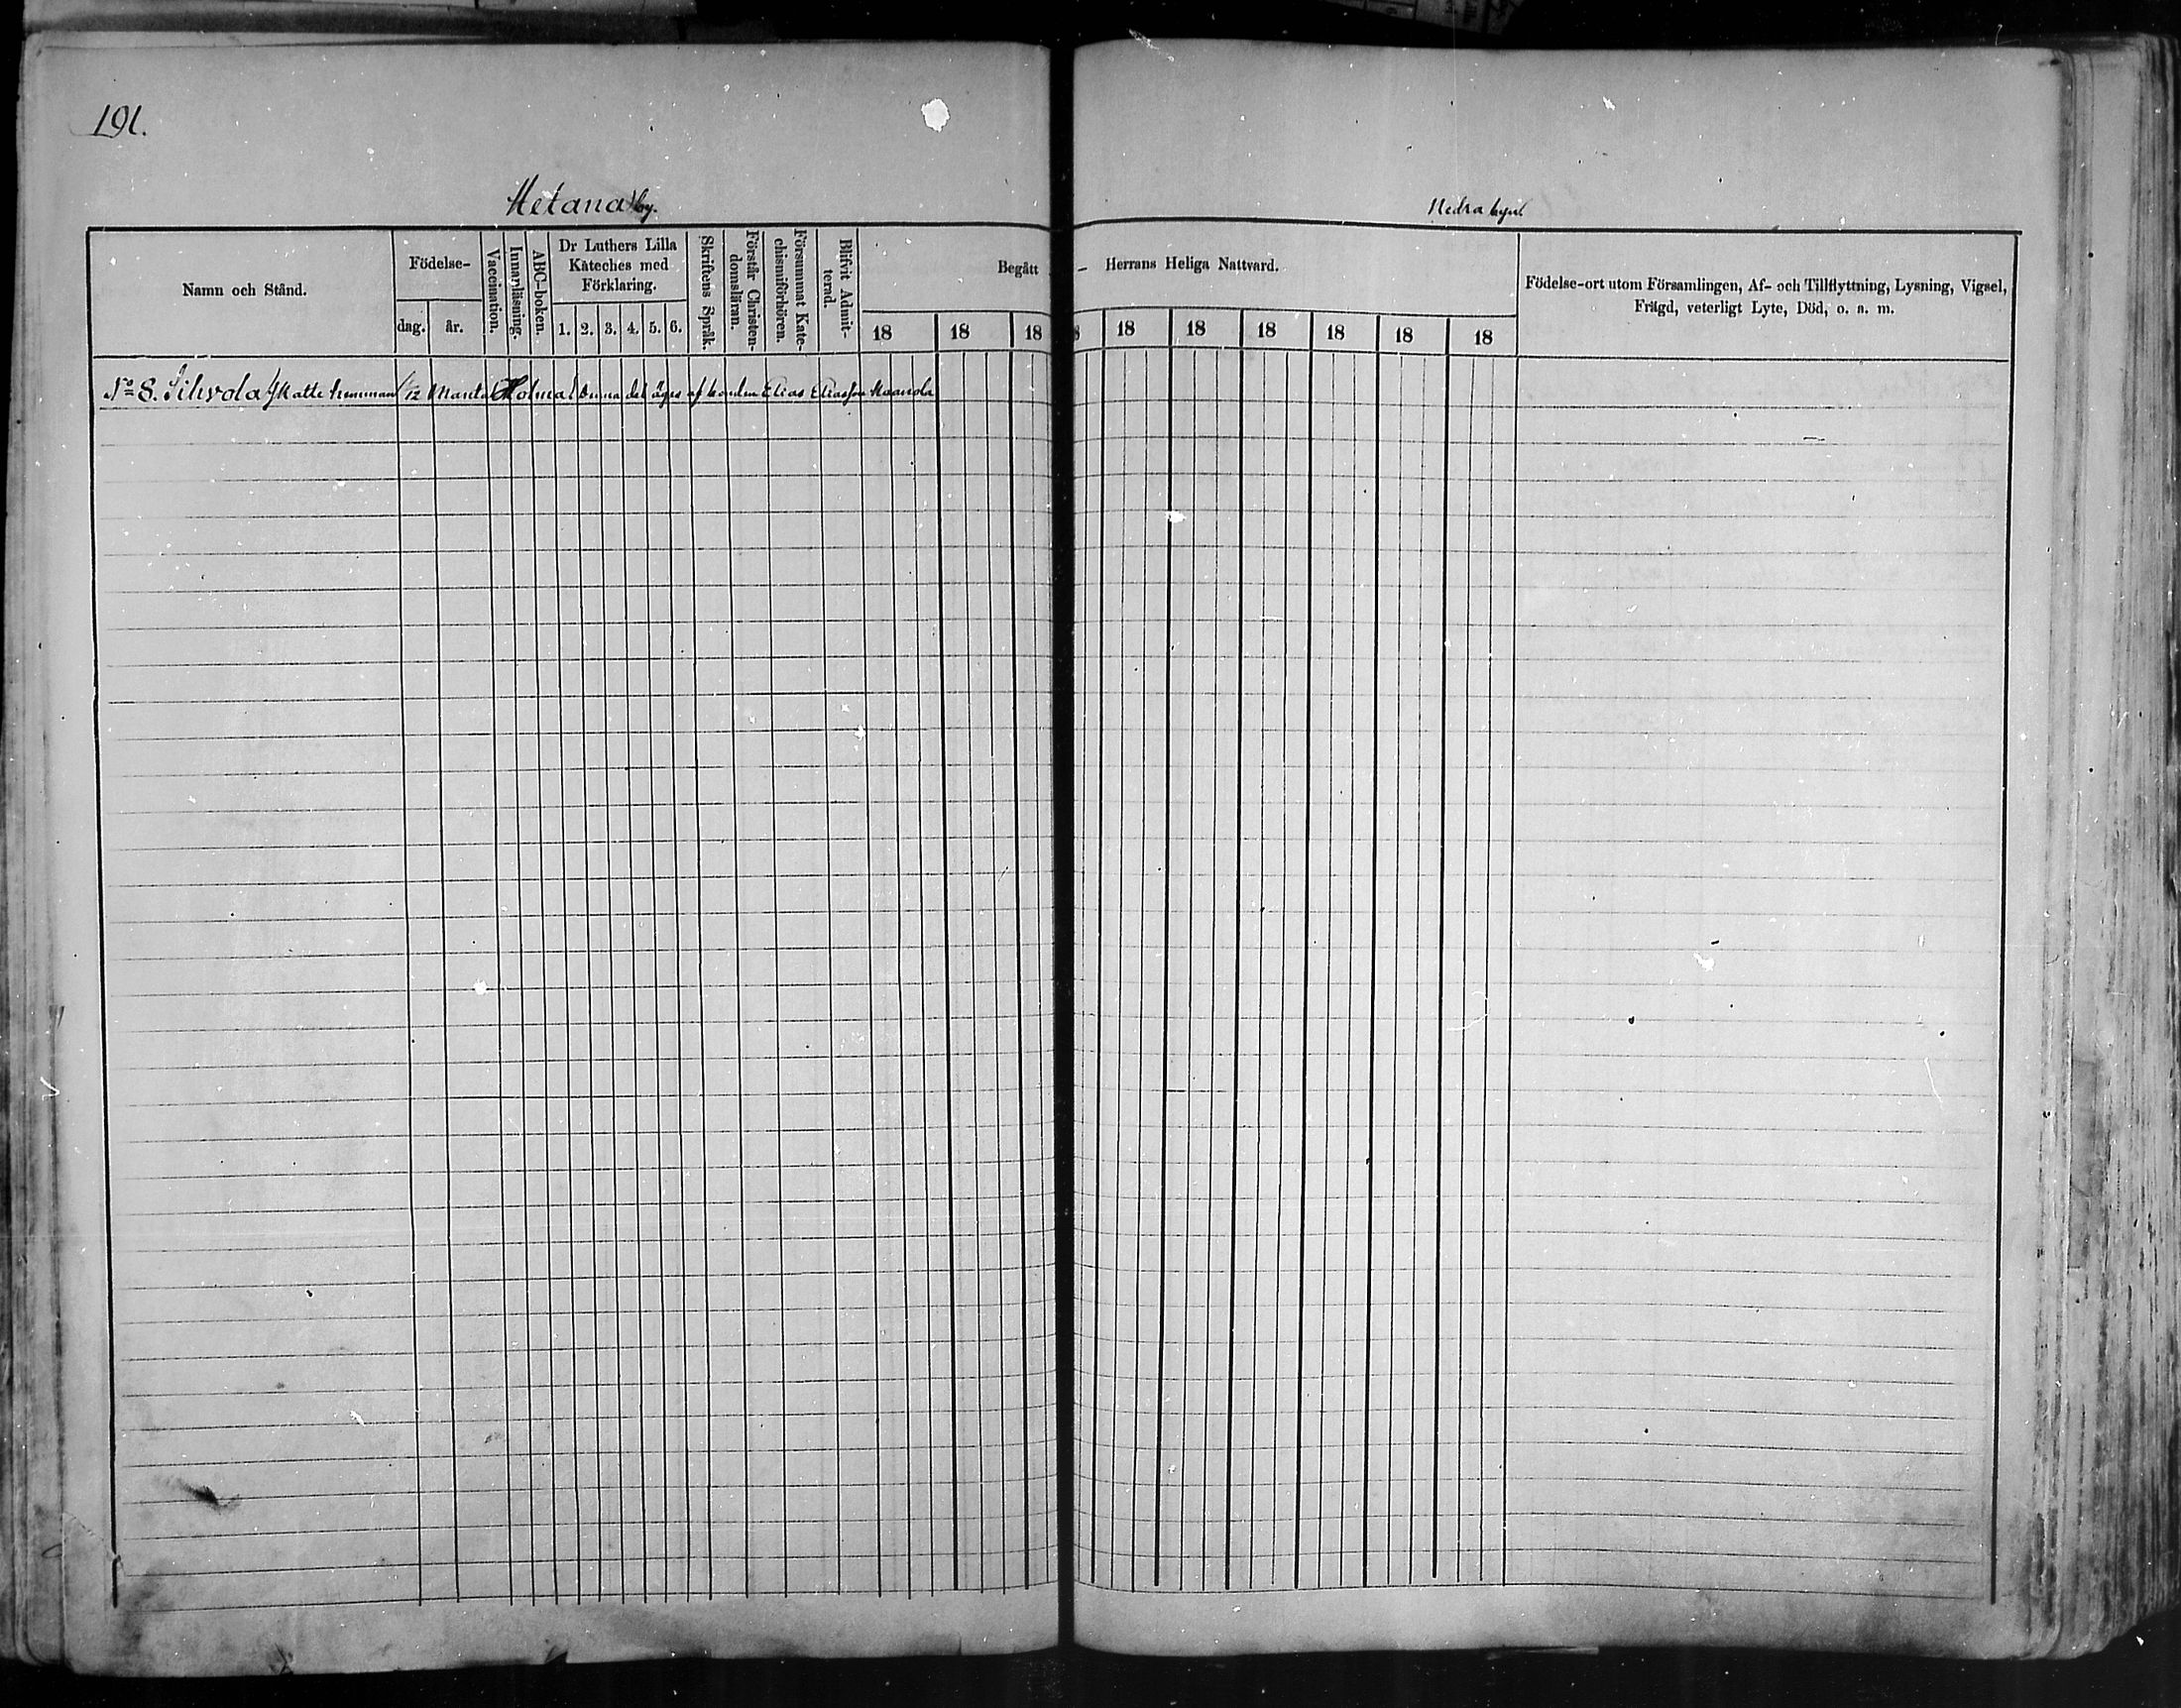 191.
Metana by.
Nedra byn
Namn och Stånd.
Födelse-
dag.
år.
Vaccination.
Innanläsning.
ABC-boken.
Dr Luthers Lilla
Kateches med
Förklaring.
1. 2. 3. 4. 5. 6.
Skriftens Språk.
Förstår Christen-
domsläran.
Försummat Kate-
chismiförhören.
Blifvit Admit-
terad.
Begått - Herrans Heliga Nattvard.
18 18 18 18 18 18 18 18 18
Födelse-ort utom Församlingen, Af- och Tillflyttning, Lysning, Vigsel,
Frägd, veterligt Lyte, Död, o. a. m.
No 8. Sihvola 1/12 Manta Denna del äges af bonden Elias Eliasson